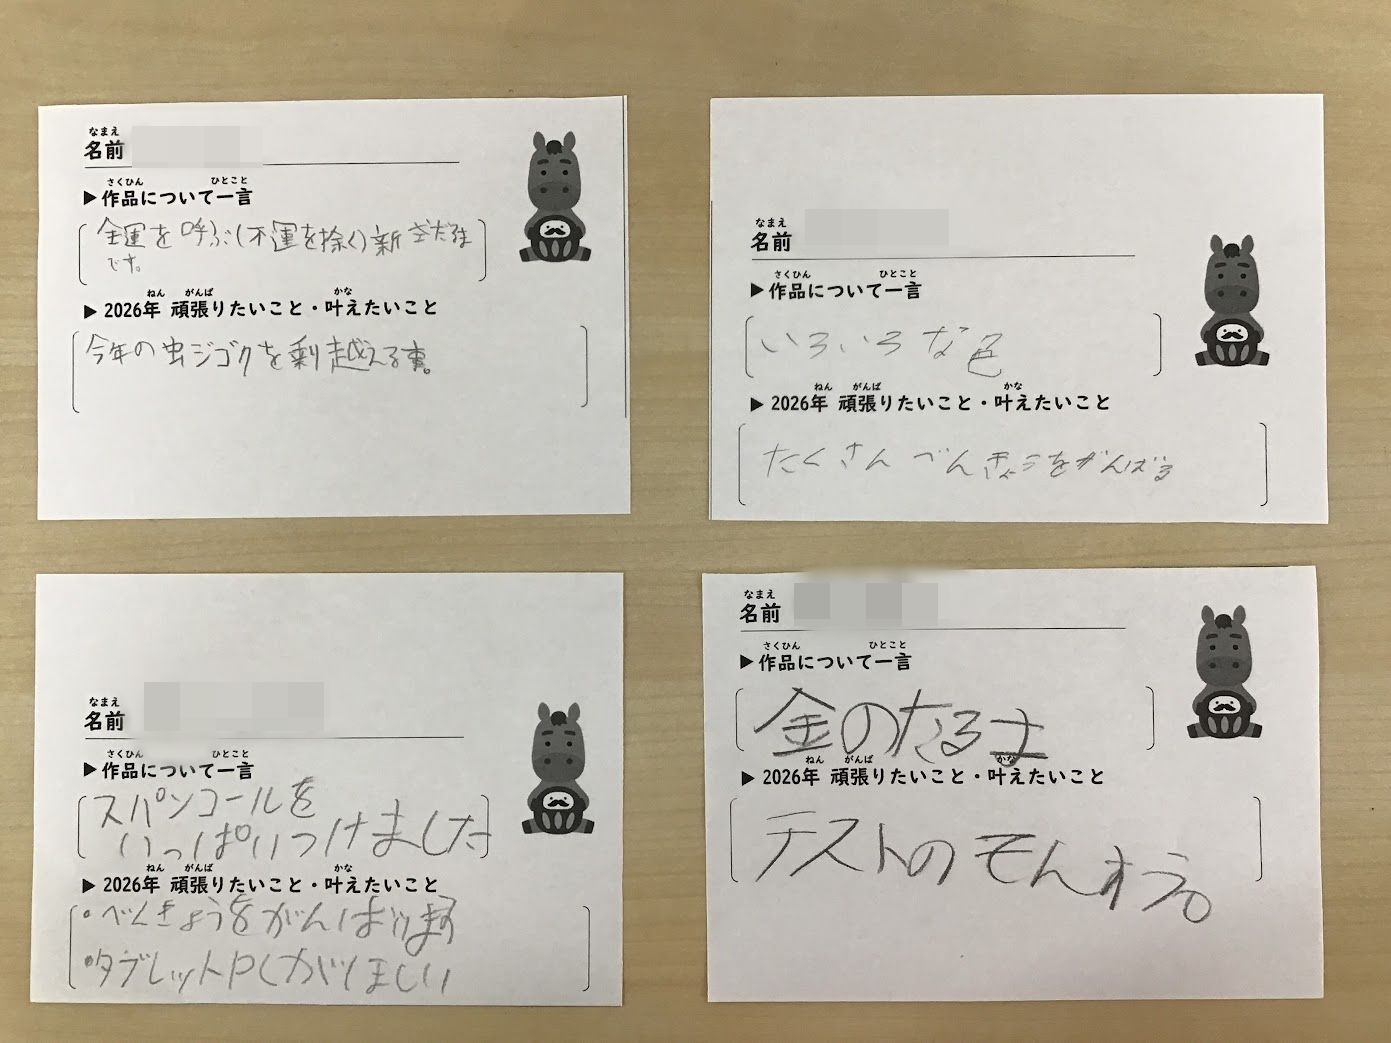 なまえ
名前
さくひん ひとこと
▶作品について一言
金運を呼ぶ(不運を除く)新 だるま
です。
ねん がんば かな
▶2026年 頑張りたいこと・叶えたいこと
今年の虫ジゴクを乗り越える事。
なまえ
名前
さくひん ひとこと
▶作品について一言
いろいろな色
ねん がんば かな
▶2026年 頑張りたいこと・叶えたいこと
たくさん べんきょうをがんばる
なまえ
名前
さくひん ひとこと
▶作品について一言
スパンコールを
いっぱいつけました
ねん がんば かな
▶2026年 頑張りたいこと・叶えたいこと
・べんきょうをがんばります
・タブレットPCがほしい
なまえ
名前
さくひん ひとこと
▶作品について一言
金のだるま
ねん がんば かな
▶2026年 頑張りたいこと・叶えたいこと
テストの